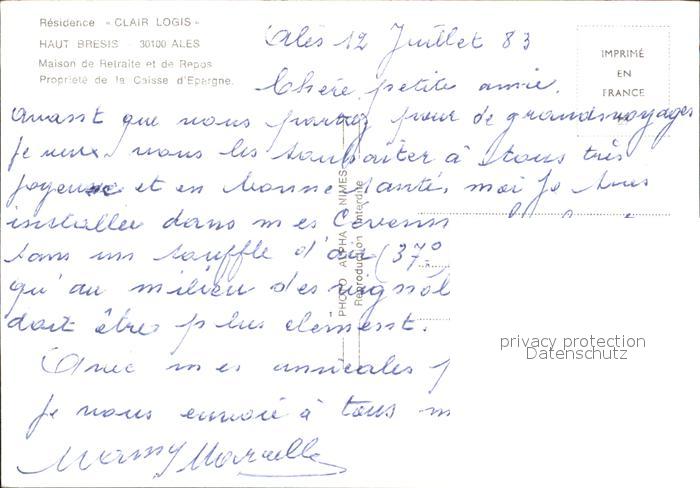 Résidence « CLAIR LOGIS »
HAUT BRESIS - 30100 ALES
Maison de Retraite et de Repos
Propriété de la Caisse d'Epargne.
Alès 12 Juillet 83
IMPRIMÉ
EN
FRANCE
Chère petite amie,
avant que vous partez pour de grands voyages
je veux vous les souhaiter à tous très
joyeux et en bonne santé, moi je suis
installée dans mes Cévenn
sans un souffle d'air (37°
qu'au milieu des vignobl
doit être plus clément.
Avec mes amicales p
je vous envoie à tous m
Mamy Marcelle
PHOTO ALPHA NIMES
Reproduction interdite
privacy protection
Datenschutz